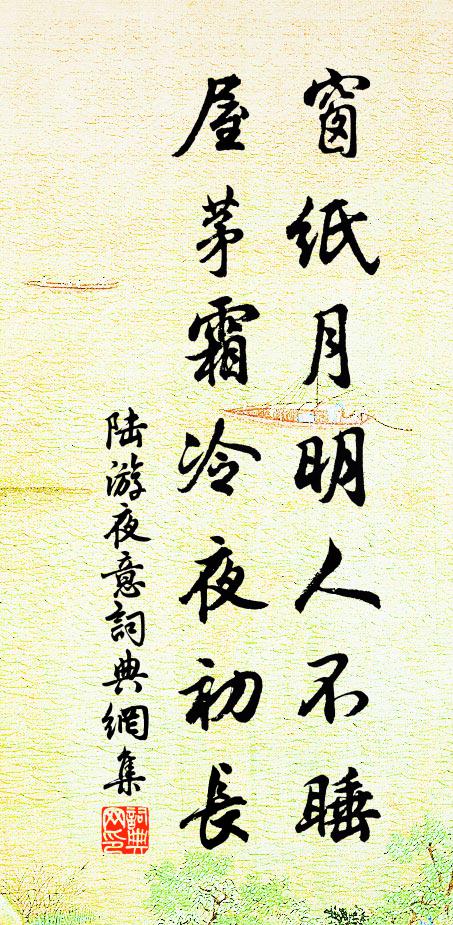 窗紙月明人不睡
屋茅霜冷夜初長
陸游夜意詞典網集
詞典網印